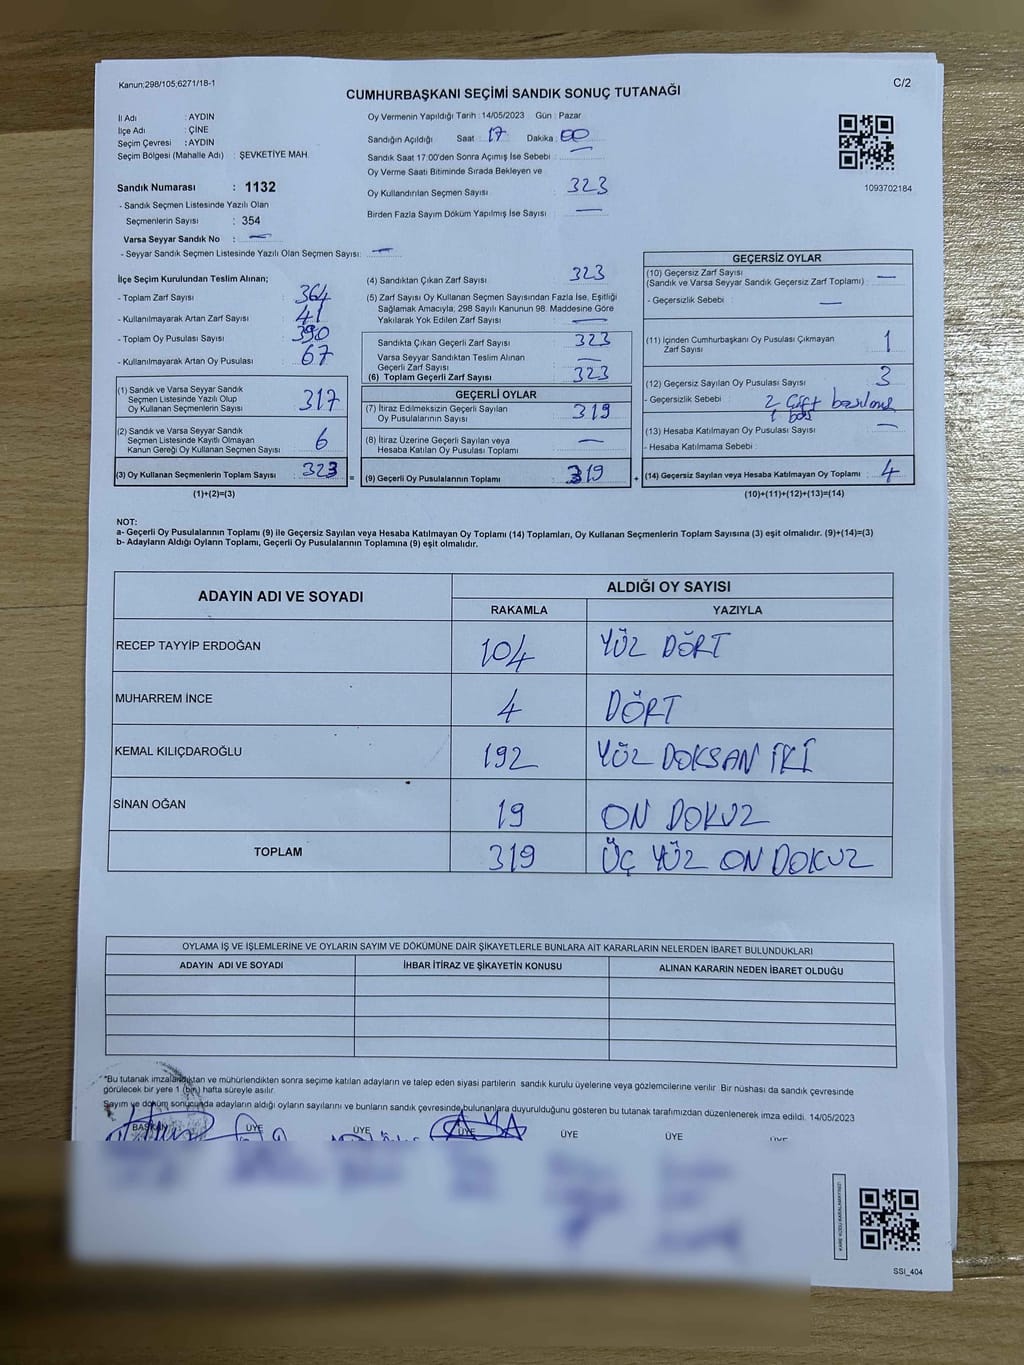 Kanun:298/105,6271/18-1
C/2
CUMHURBAŞKANI SEÇİMİ SANDIK SONUÇ TUTANAĞI
İl Adı : AYDIN
İlçe Adı : ÇİNE
Seçim Çevresi : AYDIN
Seçim Bölgesi (Mahalle Adı) : ŞEVKETİYE MAH.
Sandık Numarası : 1132
- Sandık Seçmen Listesinde Yazılı Olan
Seçmenlerin Sayısı : 354
Varsa Seyyar Sandık No : —
- Seyyar Sandık Seçmen Listesinde Yazılı Olan Seçmen Sayısı: —
Oy Vermenin Yapıldığı Tarih : 14/05/2023 Gün : Pazar
Sandığın Açıldığı Saat : 17 Dakika : 00
Sandık Saat 17:00'den Sonra Açımış İse Sebebi : —
Oy Verme Saati Bitiminde Sırada Bekleyen ve
Oy Kullandırılan Seçmen Sayısı : 323
Birden Fazla Sayım Döküm Yapılmış İse Sayısı : —
1093702184
İlçe Seçim Kurulundan Teslim Alınan;
- Toplam Zarf Sayısı : 364
- Kullanılmayarak Artan Zarf Sayısı : 41
- Toplam Oy Pusulası Sayısı : 390
- Kullanılmayarak Artan Oy Pusulası : 67
(1) Sandık ve Varsa Seyyar Sandık
Seçmen Listesinde Yazılı Olup
Oy Kullanan Seçmenlerin Sayısı : 317
(2) Sandık ve Varsa Seyyar Sandık
Seçmen Listesinde Kayıtlı Olmayan
Kanun Gereği Oy Kullanan Seçmen Sayısı : 6
(3) Oy Kullanan Seçmenlerin Toplam Sayısı : 323 =
(1)+(2)=(3)
(4) Sandıktan Çıkan Zarf Sayısı : 323
(5) Zarf Sayısı Oy Kullanan Seçmen Sayısından Fazla İse, Eşitliği
Sağlamak Amacıyla; 298 Sayılı Kanunun 98. Maddesine Göre
Yakılarak Yok Edilen Zarf Sayısı : —
Sandıkta Çıkan Geçerli Zarf Sayısı : 323
Varsa Seyyar Sandıktan Teslim Alınan
Geçerli Zarf Sayısı : —
(6) Toplam Geçerli Zarf Sayısı : 323
GEÇERLİ OYLAR
(7) İtiraz Edilmeksizin Geçerli Sayılan
Oy Pusulalarının Sayısı : 319
(8) İtiraz Üzerine Geçerli Sayılan veya
Hesaba Katılan Oy Pusulası Toplamı : —
(9) Geçerli Oy Pusulalarının Toplamı : 319 +
GEÇERSİZ OYLAR
(10) Geçersiz Zarf Sayısı
(Sandık ve Varsa Seyyar Sandık Geçersiz Zarf Toplamı) : —
- Geçersizlik Sebebi : —
(11) İçinden Cumhurbaşkanı Oy Pusulası Çıkmayan
Zarf Sayısı : 1
(12) Geçersiz Sayılan Oy Pusulası Sayısı : 3
- Geçersizlik Sebebi : 2 çift basılmış
1 boş
(13) Hesaba Katılmayan Oy Pusulası Sayısı : —
- Hesaba Katılmama Sebebi :
(14) Geçersiz Sayılan veya Hesaba Katılmayan Oy Toplamı : 4
(10)+(11)+(12)+(13)=(14)
NOT:
a- Geçerli Oy Pusulalarının Toplamı (9) ile Geçersiz Sayılan veya Hesaba Katılmayan Oy Toplamı (14) Toplamları, Oy Kullanan Seçmenlerin Toplam Sayısına (3) eşit olmalıdır. (9)+(14)=(3)
b- Adayların Aldığı Oyların Toplamı, Geçerli Oy Pusulalarının Toplamına (9) eşit olmalıdır.
ADAYIN ADI VE SOYADI
ALDIĞI OY SAYISI
RAKAMLA YAZIYLA
RECEP TAYYİP ERDOĞAN 104 YÜZ DÖRT
MUHARREM İNCE 4 DÖRT
KEMAL KILIÇDAROĞLU 192 YÜZ DOKSAN İKİ
SİNAN OĞAN 19 ON DOKUZ
TOPLAM 319 ÜÇ YÜZ ON DOKUZ
OYLAMA İŞ VE İŞLEMLERİNE VE OYLARIN SAYIM VE DÖKÜMÜNE DAİR ŞİKAYETLERLE BUNLARA AİT KARARLARIN NELERDEN İBARET BULUNDUKLARI
ADAYIN ADI VE SOYADI İHBAR İTİRAZ VE ŞİKAYETİN KONUSU ALINAN KARARIN NEDEN İBARET OLDUĞU
*Bu tutanak imzalandıktan ve mühürlendikten sonra seçime katılan adayların ve talep eden siyasi partilerin sandık kurulu üyelerine veya gözlemcilerine verilir. Bir nüshası da sandık çevresinde
görülecek bir yere 1 (bir) hafta süreyle asılır.
Sayım ve döküm sonucunda adayların aldığı oyların sayılarını ve bunların sandık çevresinde bulunanlara duyurulduğunu gösteren bu tutanak tarafımızdan düzenlenerek imza edildi. 14/05/2023
BAŞKAN ÜYE ÜYE ÜYE ÜYE ÜYE ÜYE
KARE KODU KARALAMAYINIZ!
SSI_404